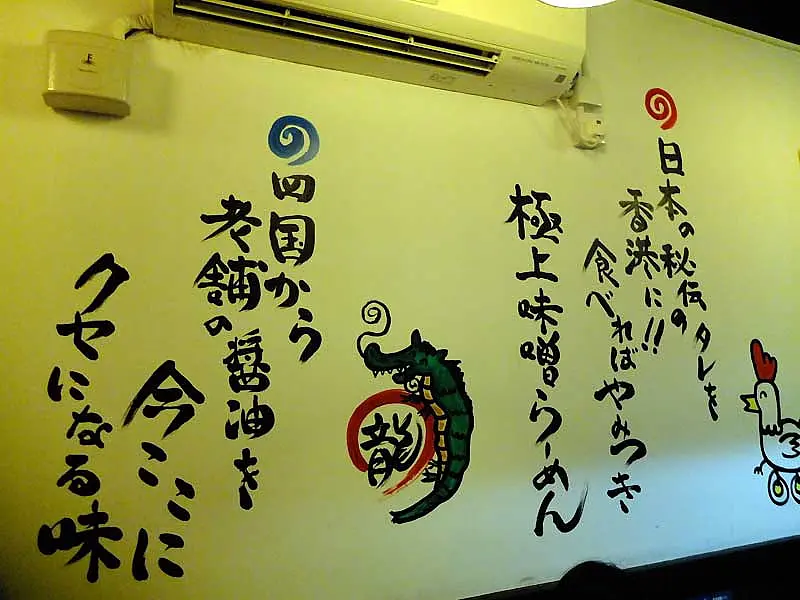 日本の秘伝のタレを
香港に!!
食べればやみつき
極上味噌らーめん
龍
四国から
老舗の醤油を
今ここに
クセになる味